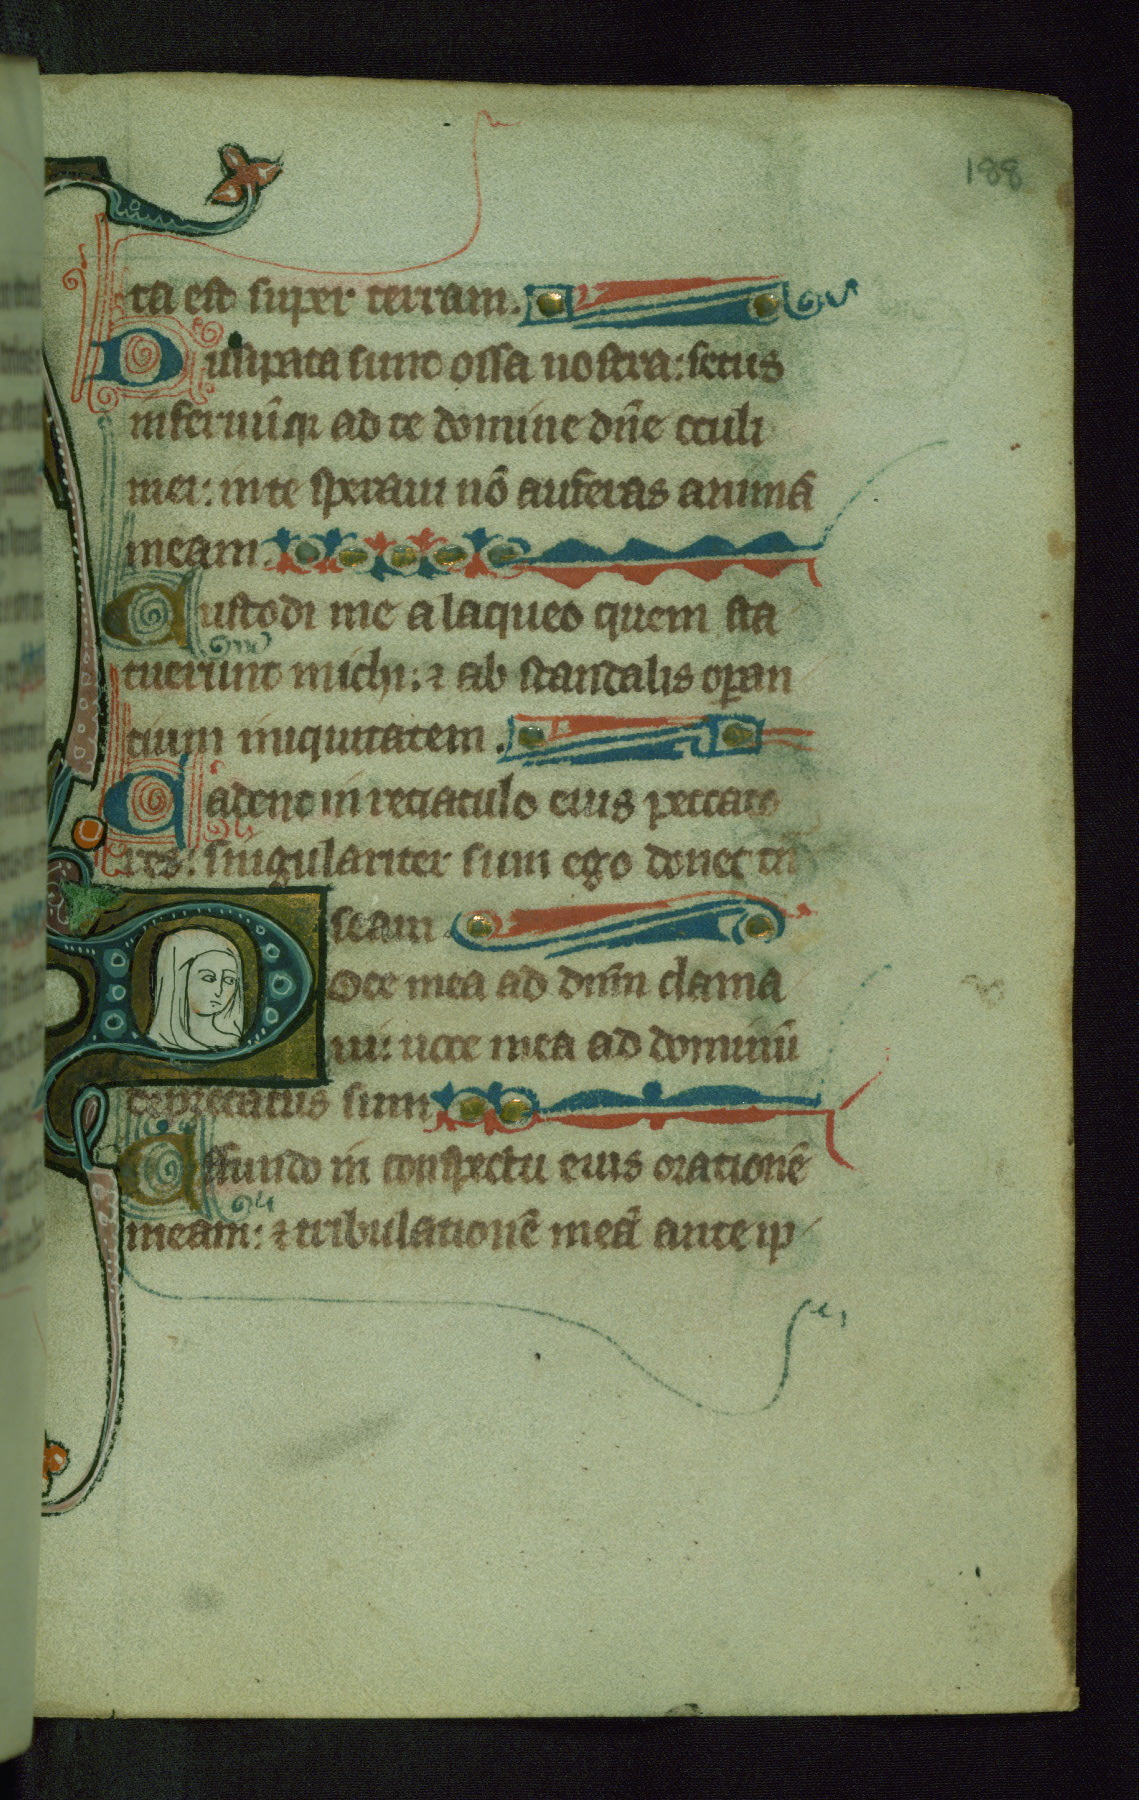 188
ta est super terram.
Dissipata sunt ossa nostra: secus
infernū: qr ad te domine dn̄e occuli
mei: in te speraui nō auferas animā
meam.
Custodi me a laqueo quem sta
tuerunt michi: ⁊ ab scandalis operan
tium iniquitatem.
Cadent in retiaculo eius peccato
res: singulariter sum ego donec trā
seam
Voce mea ad dn̄m clama
ui: uoce mea ad dominū
deprecatus sum
Effundo in conspectu eius orationē
meam: ⁊ tribulationē meā ante ip